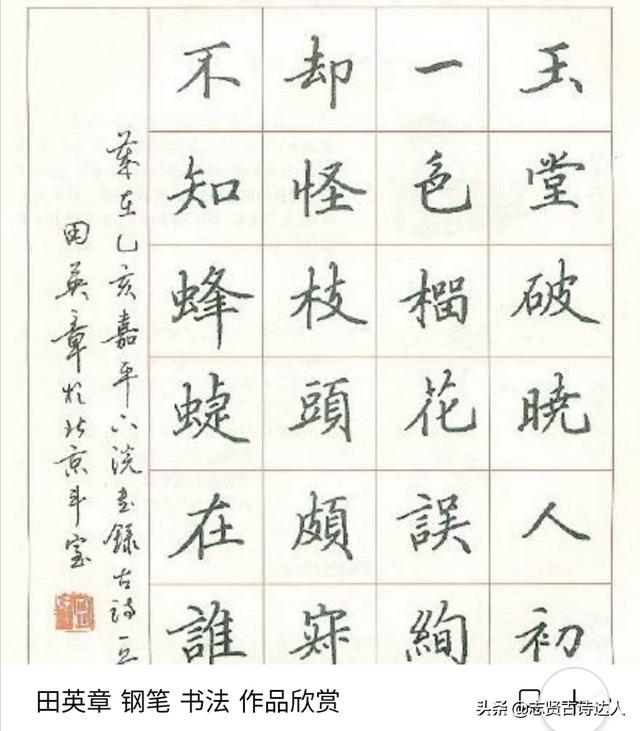 玉堂破暁人初
一色榴花誤絢
却怪枝頭頗寂
不知蜂蜨在誰
歲在乙亥嘉平下浣書錄古詩一
田英章於北京斗室
田英章 钢笔 书法 作品欣赏
头条 @志贤古诗达人